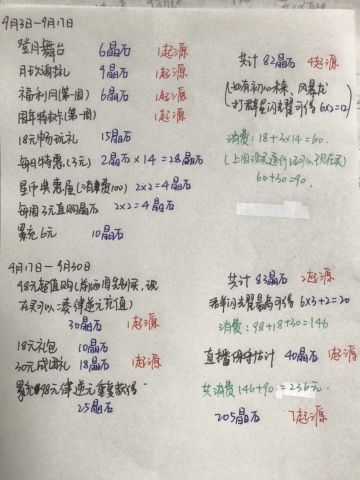 4月3日—4月17日
登月舞台 6晶石 1起源
月 礼 9晶石 1起源
福利周(第一周) 6晶石 1起源
周年特 (第一周) 1起源
18元畅玩礼 15晶石
每日特惠(3元) 2晶石×14=28晶石
星 典 屋(消费100) 2×2=4晶石
每周3元直购晶石 2×2=4晶石
累充6元 10晶石
共计82晶石 4起源
(如有初心未来、风暴龙
打群星闪耀可得6×2=12)
消费:18+3×14=60.
(上周没买通行证可以不用在买)
60+30=90.
4月17日—4月30日
98元超值购(前两周先别买,说
在买可以 律逆元充值)
30晶石 1起源
18元礼包 10晶石
30元成团礼 18晶石 1起源
累充98元律逆元重复获得.
25晶石
共计83晶石 2起源
群星闪耀最高可得6×3+2=20
消费:98+18+30=146
直播保守估计 40晶石 1起源
共消费146+90=236元.
205晶石 7起源